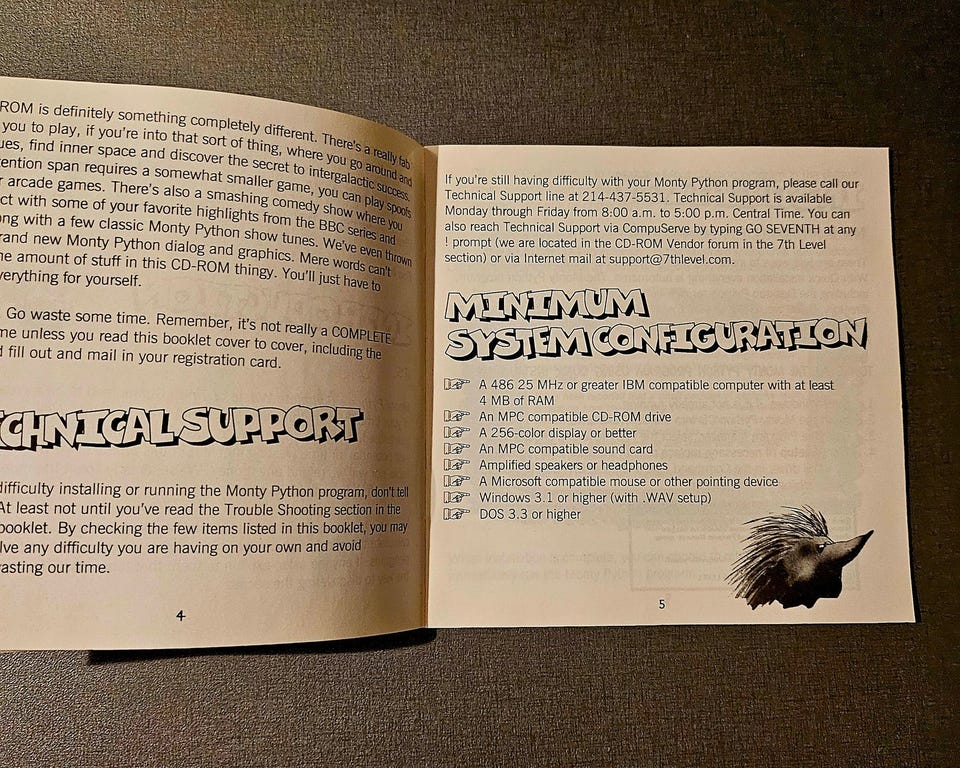 ROM is definitely something completely different. There's a really fab
you to play, if you're into that sort of thing, where you go around and
ues, find inner space and discover the secret to intergalactic success.
tention span requires a somewhat smaller game, you can play spoofs
r arcade games. There's also a smashing comedy show where you
ct with some of your favorite highlights from the BBC series and
ong with a few classic Monty Python show tunes. We've even thrown
rand new Monty Python dialog and graphics. Mere words can't
he amount of stuff in this CD-ROM thingy. You'll just have to
verything for yourself.
. Go waste some time. Remember, it's not really a COMPLETE
me unless you read this booklet cover to cover, including the
d fill out and mail in your registration card.
CHNICAL SUPPORT
difficulty installing or running the Monty Python program, don't tell
At least not until you've read the Trouble Shooting section in the
booklet. By checking the few items listed in this booklet, you may
lve any difficulty you are having on your own and avoid
asting our time.
4
If you're still having difficulty with your Monty Python program, please call our
Technical Support line at 214-437-5531. Technical Support is available
Monday through Friday from 8:00 a.m. to 5:00 p.m. Central Time. You can
also reach Technical Support via CompuServe by typing GO SEVENTH at any
! prompt (we are located in the CD-ROM Vendor forum in the 7th Level
section) or via Internet mail at support@7thlevel.com.
MINIMUM
SYSTEM CONFIGURATION
A 486 25 MHz or greater IBM compatible computer with at least
4 MB of RAM
An MPC compatible CD-ROM drive
A 256-color display or better
An MPC compatible sound card
Amplified speakers or headphones
A Microsoft compatible mouse or other pointing device
Windows 3.1 or higher (with .WAV setup)
DOS 3.3 or higher
5